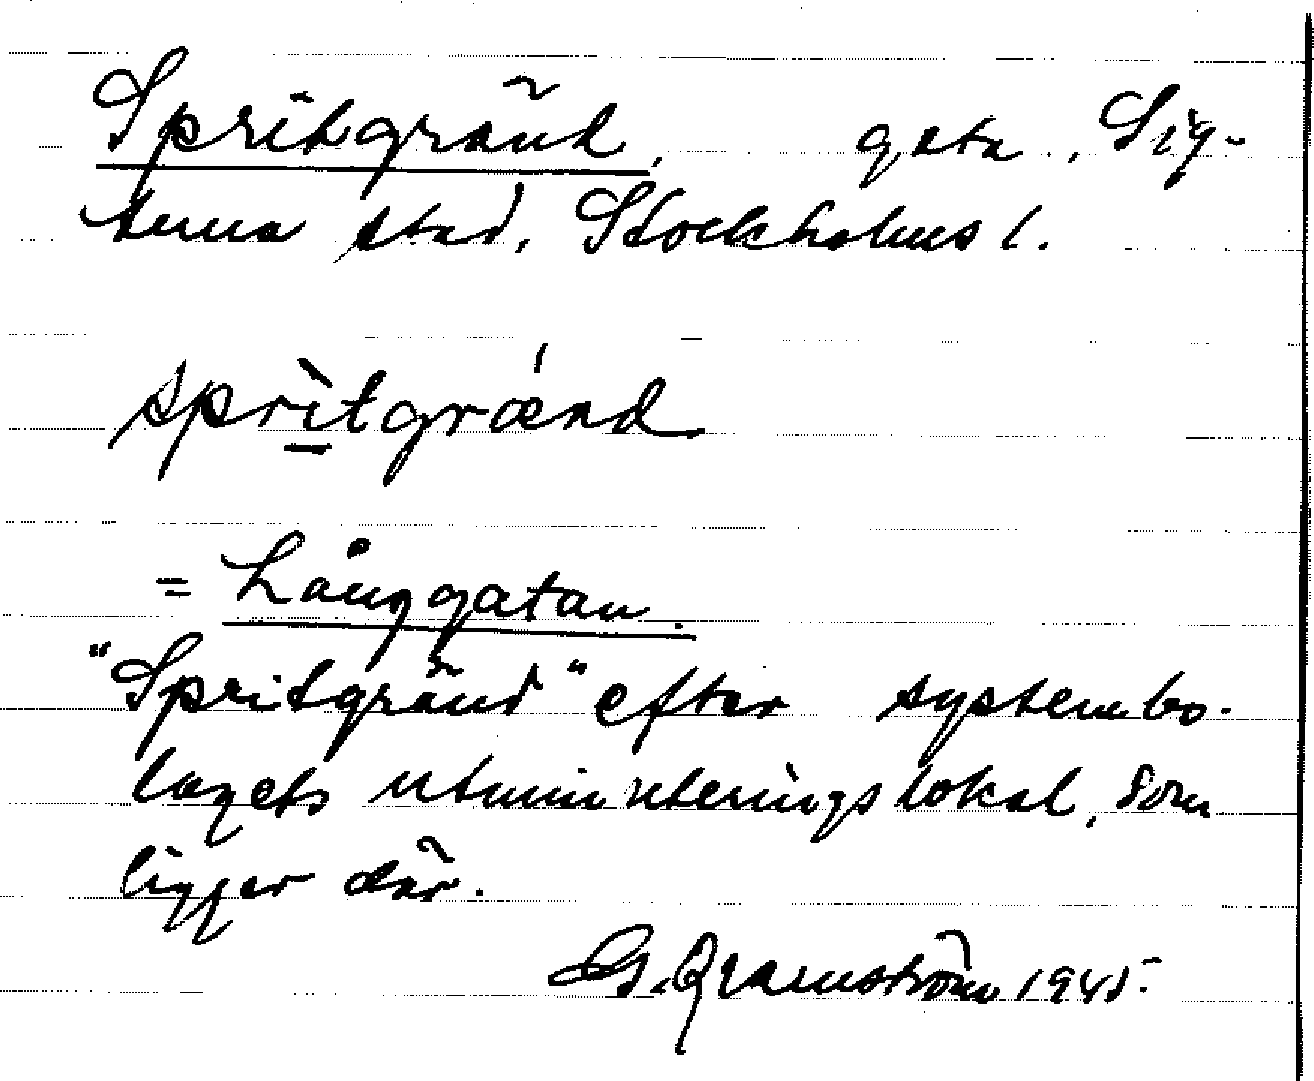 Spritgränd, gata, Sig-
tuna stad, Stockholms l.
sprìtgræ´nd
= Långgatan.
"Spritgränd" efter systembo-
lagets utminuteringslokal, som
ligger där.
G. Franström 1945.